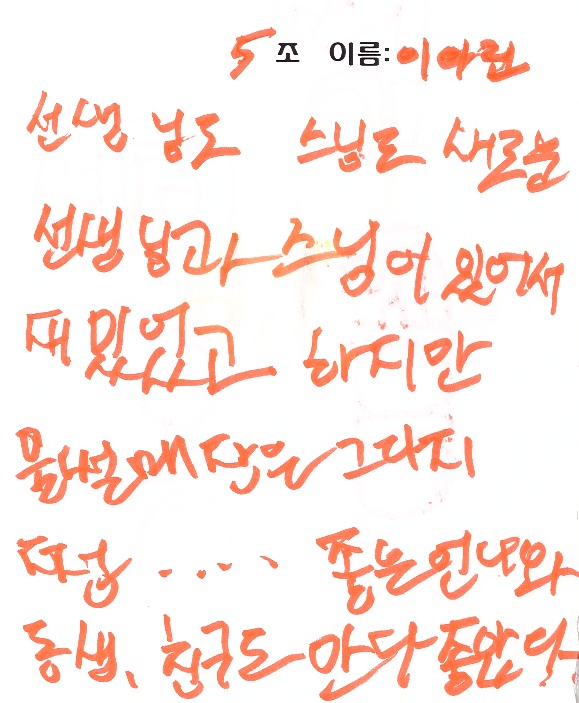 5 조 이름: 이아현
선생님도 스님도 새로운
선생님과 스님이 있어서
재밌었고 하지만
물썰매장은 그다지
좋은 언니와
동생, 친구도 만나 좋았다.